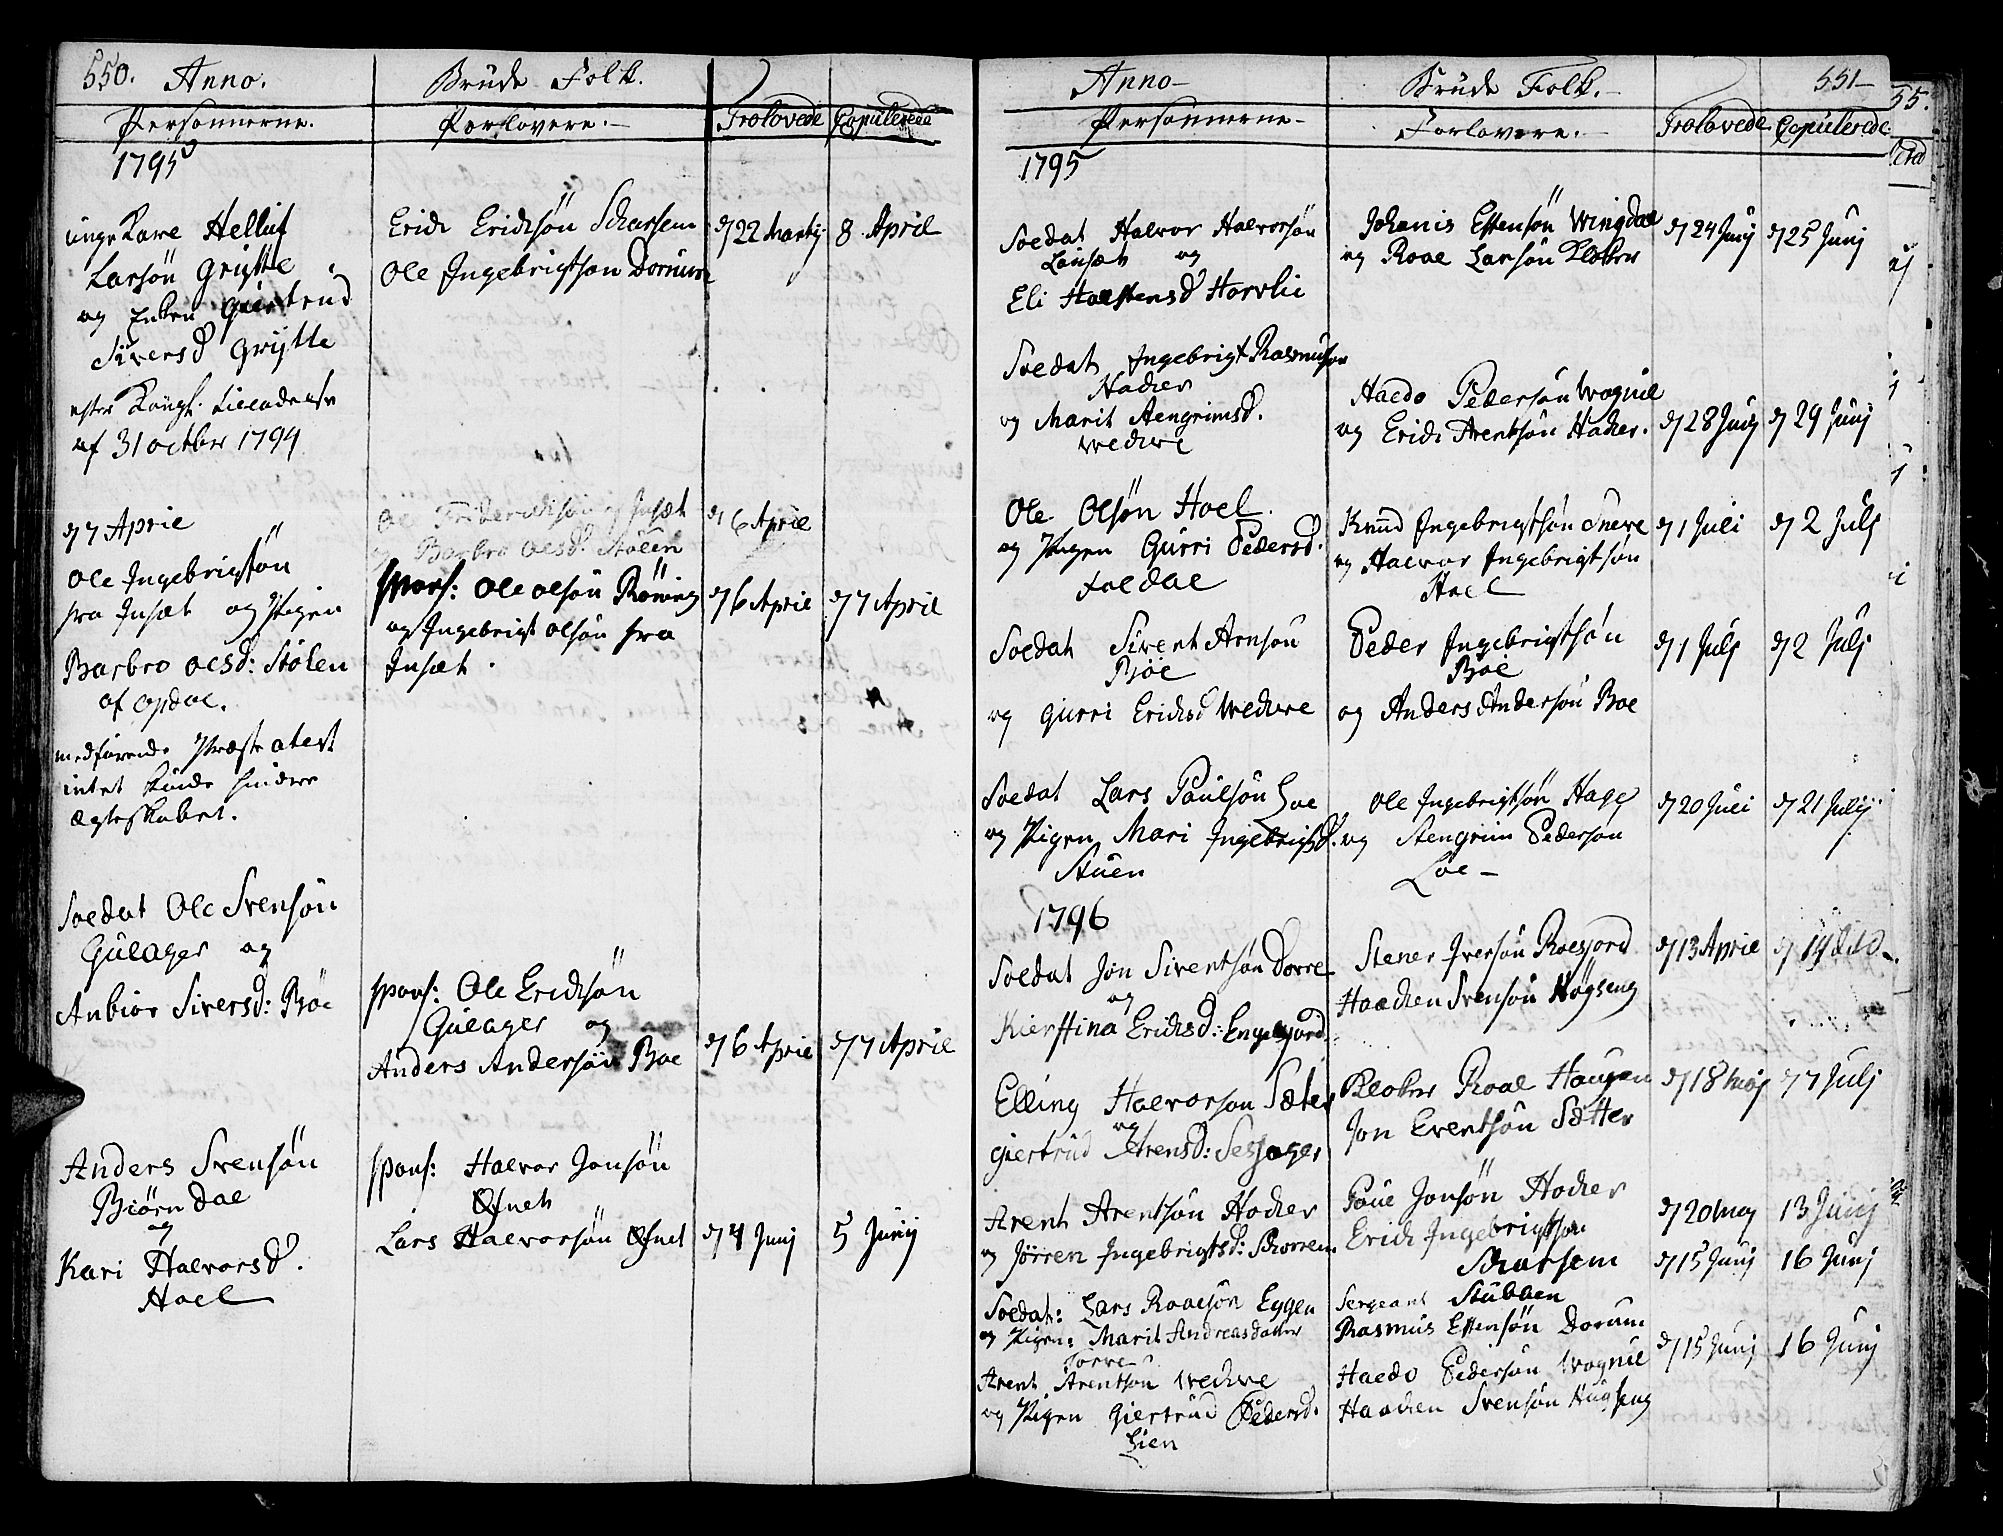 550. Anno.
Brude Folk.
Personnerne.
Forlovere.
Trolovede
Copulerede
1795
unge Karl Helluf
Larsön Grytte
og Enken Giertrud
Siversd Grytte
efter Kongl.
af 31 octbr 1794
Erich Erichsön Scharsem
Ole Ingebrigtson Dorum
d 22 Martij
8 April
d 7 April
Ole Ingebrigtsön
fra Insæt og Pigen
Barbro Olsd: Stölen
af Opdal.
medförende Præste atest
intet kunde hindre
Ægteskabet.
Ole Insæt
og Barbro Olsd. Stölen
d 6 April
spons: Ole Olsön Röning
og Ingebrigt Olsön fra
Insæt.
d 6 April
d 7 April
Soldat Ole Svensön
Gulager og
Anbior Siversd: Böe
spons: Ole Erichsön
Gulager og
Anders Andersön Boe
d 6 April
d 7 April
Anders Svensön
Biörndal
og
Kari Halvorsd.
Hoel
spons: Halvor Jonsön
Öfnet
Lars Halvorsön Öfnet
d 4 Junj
5 Junij
Anno
Brude Folk.
551
Personnerne
Forlovere.
Trolovede
Copulerede
1795
Soldat Halvor Halvorsön
og
Eli Halstensd Horvlie
Johanis Estensön Wingdal
og Roal Larsön Klokker
d 24 Junij
d 25 Junj
Soldat Ingebrigt Rasmuson
Hocher
og Marit Aengrimsd.
Wechre
Haldo Pedersön Wognil
og Erich Arentsön Hocher.
d 28 Junj
d 29 Junj
Ole Olsön Hoel
og Pigen Gurri Pedersd.
Foldal
Knud Ingebrigtsön Snere
og Halvor Ingebrigtsön
Hoel
d 1 Juli
d 2 Julj
Soldat Sivert Arnsön
Böe
og Gurri Ericksd Wechre
Peder Ingebrigtsön
Boe
og Anders Andersön Boe
d 1 Julj
d 2 Julj
Soldat Lars Paulsön Loe
og Pigen Mari Ingebrigsd.
Stuen
Ole Ingebrigtsön Hage
og Stengrim Pederson
Loe
d 20 Juli
d 21 Julij
1796
Soldat Jon Sivertsön Dorre
og
Kierstina Ericksd: Engelsjord
Stener Iversön Roesjord
Haachen Svensön Högseng
d 13 April
d 14 dito
Elling Halvorson Sæter
og
Giertrud Arensd: Sesjager
Klokker Roal Haugen
Jon Evertsön Sætter
d 18 Maj
7 Julj
Arent Arentsön Hocher
og Jörren Ingebrigtsd: Schorrem
Poul Jonsön Hocher
Erich Ingebrigtson
Scharsem
d 20 May
13 Junij
d 15 Junj
16 Junj
Soldat: Lars Roalsön Eggen
og Pigen: Marit Andreasdatter
Torve
Sergeant Stubben
Rasmus Estensön Dorum
Arent Arentsön Wechre
og Pigen Giertrud Pedersd.
Lien
Haldo Pedersön Wognil
Haachen Svensön Hugseng
d 15 Junj
16 Junj
55.